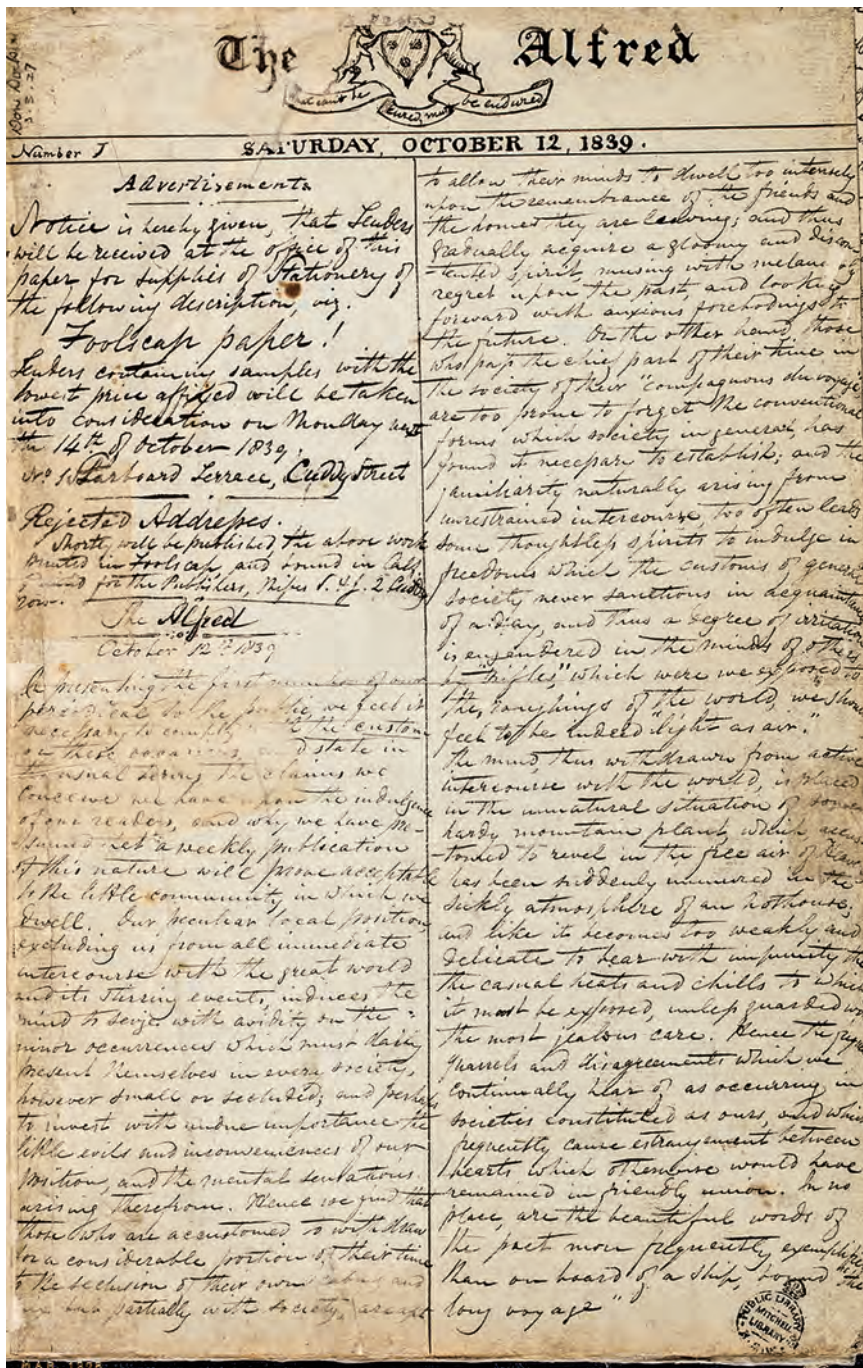 The Alfred
What can't be cured, must be endured
Number I
SATURDAY, OCTOBER 12, 1839.
Advertisements
Notice is hereby given, that Tenders
will be received at the office of this
paper for supplies of Stationery of
the following description, viz.
Foolscap paper!
Tenders containing samples with the
lowest price affixed will be taken
into consideration on Monday next
the 14th of October 1839,
No. 1 Starboard Terrace, Cuddy Street
Rejected Addresses.
Shortly will be published, the above work
printed in Foolscap, and bound in Calf
for the Publishers, 2 Cuddy
row.
The Alfred
October 12th 1839
In presenting the first number of our
periodical to the public, we feel it
necessary to comply with the custom
on these occasions, and state in
the usual terms the claims we
conceive we have upon the indulgence
of our readers, and why we have pre-
sumed that a weekly publication
of this nature will prove acceptable
to the little community in which we
dwell. Our peculiar local position
excluding us from all immediate
intercourse with the great world
and its stirring events, induces the
mind to seize with avidity on the
minor occurrences which must daily
present themselves in every society,
however small or secluded; and perhaps
to invest with undue importance the
little evils and inconveniences of our
position, and the mental sensations
arising therefrom. Hence we find that
those who are accustomed to withdraw
for a considerable portion of their time
to the seclusion of their own cabins and
mix but partially with society, are apt
to allow their minds to dwell too intensely
upon the remembrance of the friends and
the homes they are leaving; and thus
gradually acquire a gloomy and discon
-tented spirit, musing with melancholy
regret upon the past, and looking
forward with anxious forebodings to
the future. On the other hand, those
who pass the chief part of their time in
the society of their "compagnons du voyage"
are too prone to forget the conventional
forms which society in general, has
found it necessary to establish; and the
familiarity naturally arising from
unrestrained intercourse, too often leads
some thoughtless spirits to indulge in
freedoms which the customs of general
society never sanctions in acquaintances
of a day, and thus a degree of irritation
is engendered in the minds of others
by "trifles," which were we exposed to
the roughings of the world, we should
feel to be indeed "light as air."
The mind, thus withdrawn from active
intercourse with the world, is placed
in the unnatural situation of some
hardy mountain plant, which accus
-tomed to revel in the free air of Heaven
has been suddenly immured in the
sickly atmosphere of an hothouse;
and like it becomes too weakly and
delicate to bear with impunity the
the casual heats and chills to which
it must be exposed, unless guarded with
the most jealous care. Hence the
quarrels and disagreements which we
continually hear of as occurring in
societies constituted as ours, and which
frequently cause estrangement between
hearts which otherwise would have
remained in friendly union. In no
place, are the beautiful words of
the poet more frequently exemplified
than on board of a ship, bound
long voyage"
PUBLIC LIBRARY
MITCHELL
LIBRARY